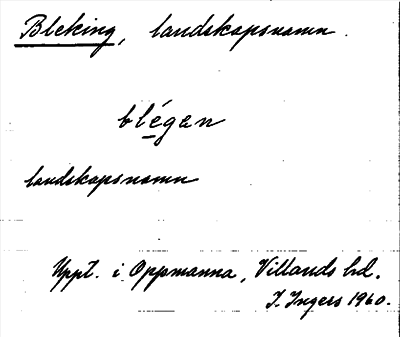 Bleking, landskapsnamn.
blégen
landskapsnamn
Uppt. i Oppmanna, Villands hd.
I. Ingers 1960.